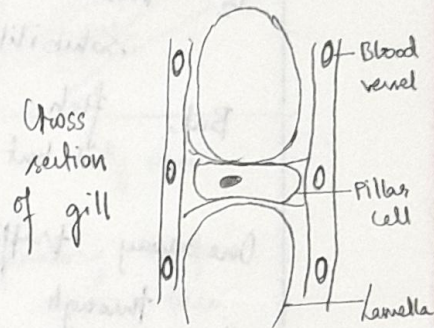 Cross
section
of gill
Blood
vessel
Pillar
cell
Lamella